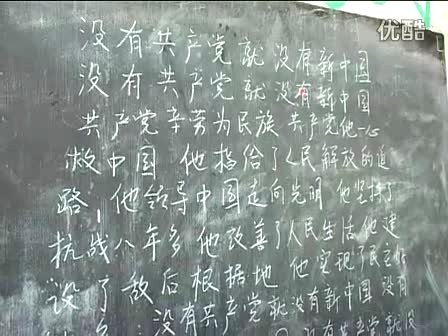 优酷
没有共产党就没有新中国
没有共产党就没有新中国
共产党辛劳为民族 共产党他一心
救中国 他指给了人民解放的道
路 他领导中国走向光明 他坚持了
抗战八年多 他改善了人民生活 他建
设了敌后根据地 他实现了民主
没有共产党就没有新中国 没有